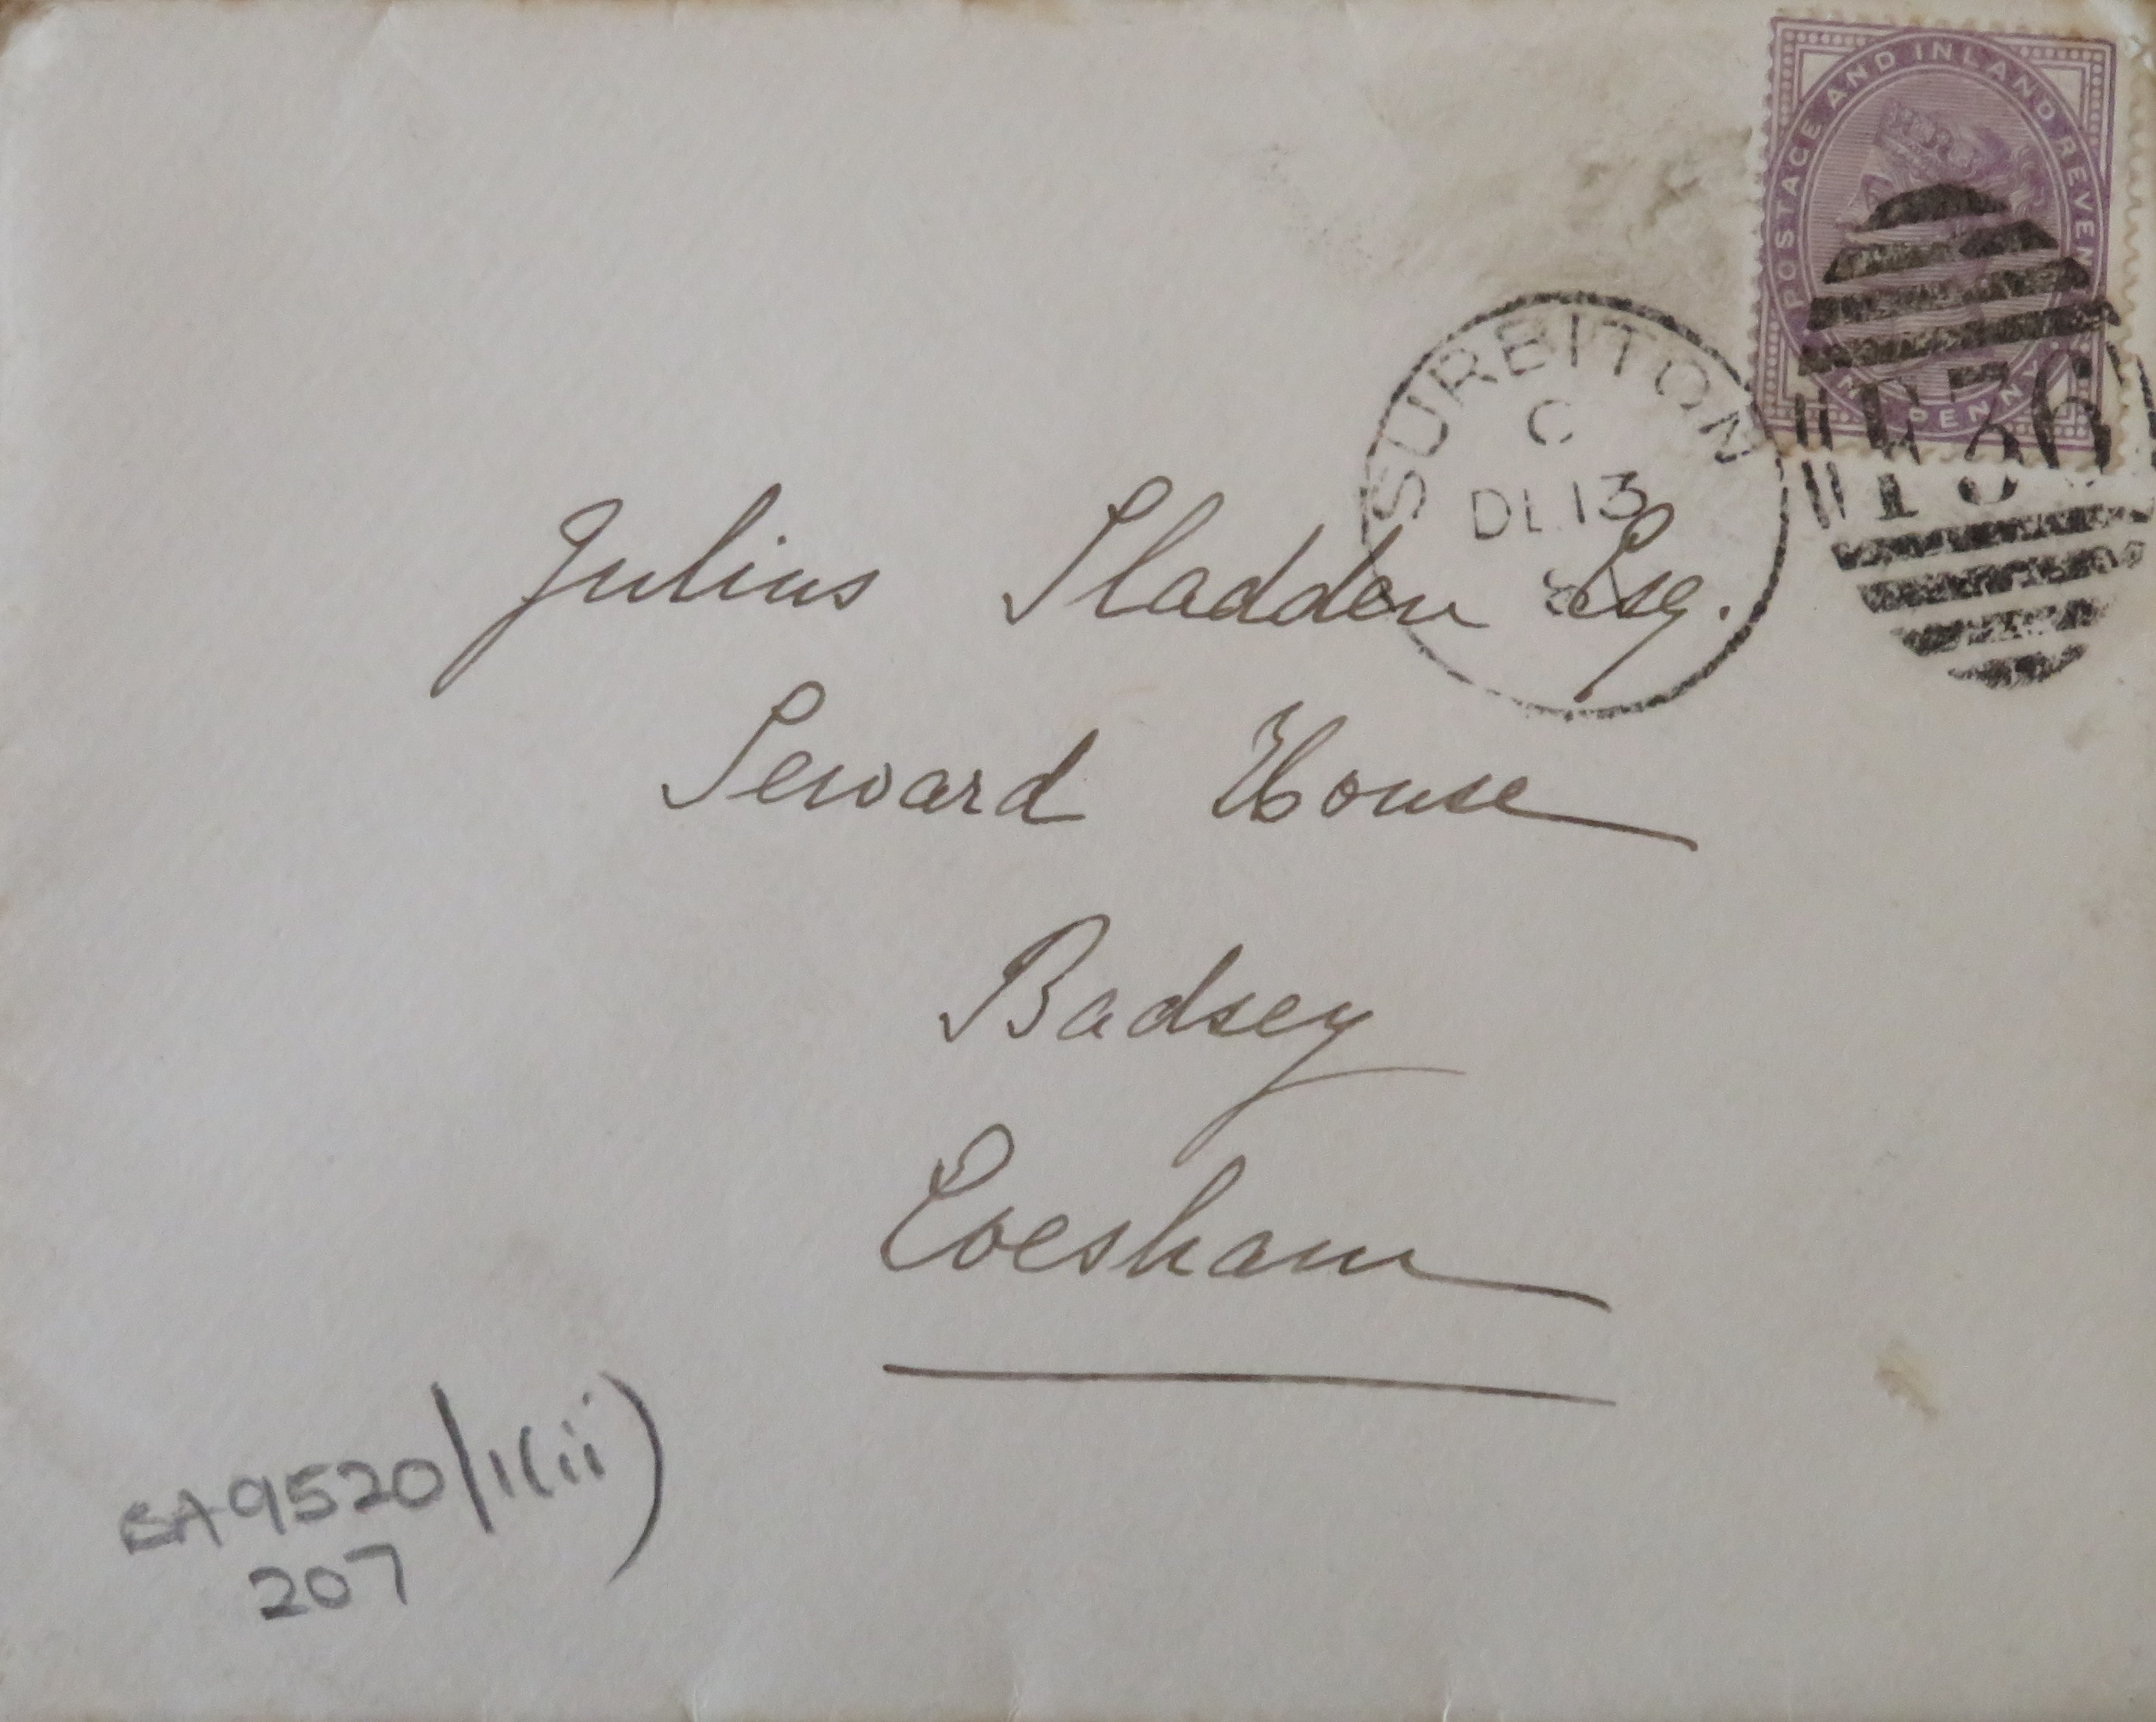 POSTAGE AND INLAND REVEN
PENNY
SURBITON
C
DE 13
Julius Sladden Esq.
Seward House
Badsey
Evesham
BA9520/1(ii)
207